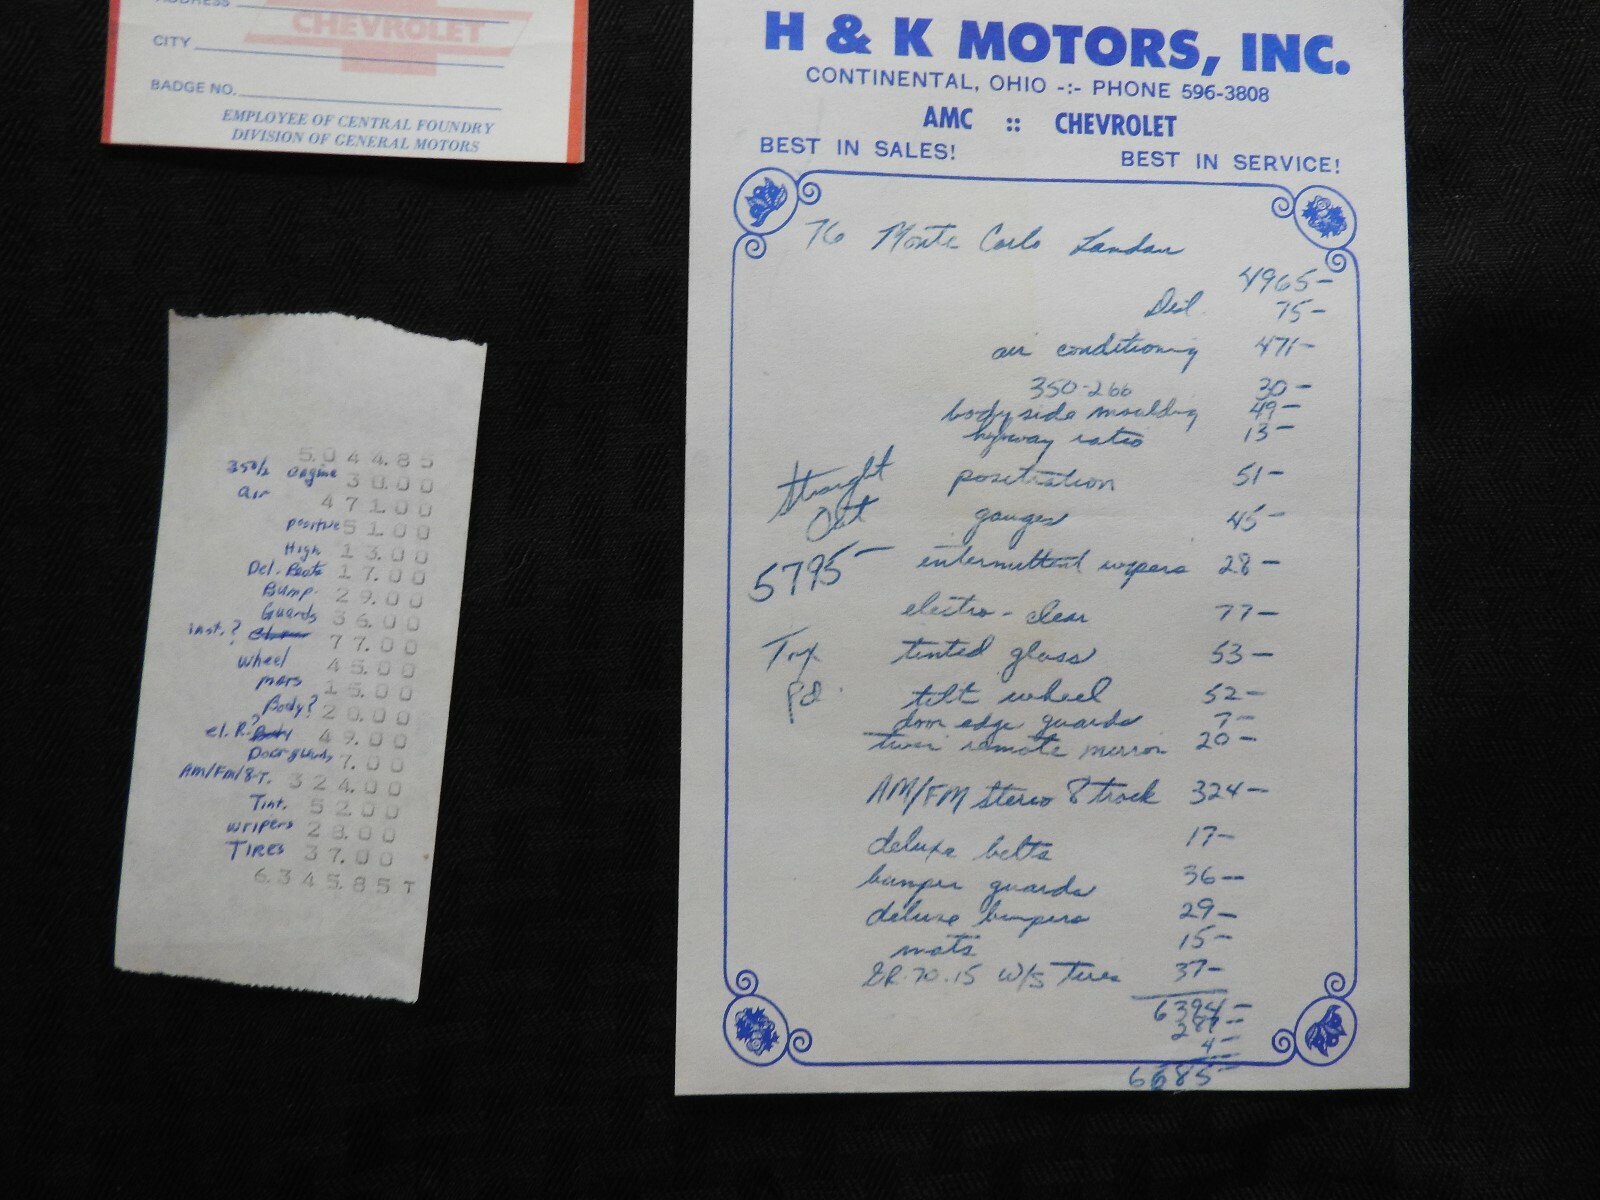 ADDRESS
CHEVROLET
CITY
BADGE NO.
EMPLOYEE OF CENTRAL FOUNDRY
DIVISION OF GENERAL MOTORS
5,044.85
350/2 engine 30.00
air 471.00
positive 51.00
High 13.00
Del. Beats 17.00
Bump. 29.00
Guards 36.00
inst.? 77.00
wheel 45.00
mars 15.00
Body? 20.00
el. R.? 49.00
Doorguard, 7.00
AM/FM/8-T. 324.00
Tint. 52.00
wripers 28.00
TIRES 37.00
6,345.85 T
H & K MOTORS, INC.
CONTINENTAL, OHIO -:- PHONE 596-3808
AMC :: CHEVROLET
BEST IN SALES! BEST IN SERVICE!
76 Monte Carlo Landau
4965-
Dest. 75-
air conditioning 471-
350-266 30-
body side moulding 49-
hyway ratio 13-
positration 51-
Straight
Out
5795-
gauges 45-
intermittent wipers 28-
electro-clear 77-
Tax
Pd.
tinted glass 53-
tilt wheel 52-
door edge guards 7-
twin remote mirror 20-
AM/FM stereo 8 track 324-
deluxe belts 17-
bumper guards 36-
deluxe bumpers 29-
mats 15-
GR-70-15 W/S Tires 37-
6394-
4-
6685-